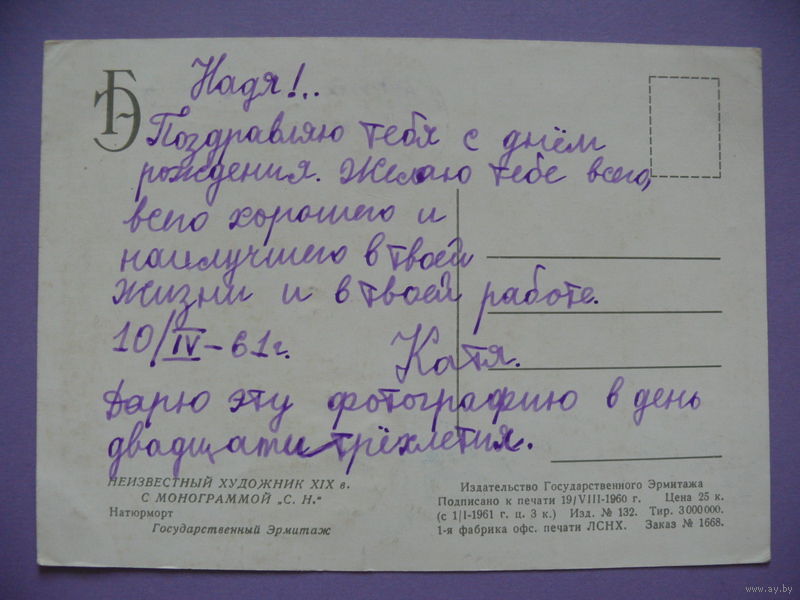 ГЭ
Надя!..
Поздравляю тебя с днём
рождения. Желаю тебе всего,
всего хорошего и
наилучшего в твоей
жизни и в твоей работе.
10/IV-61г.
Катя.
Дарю эту фотографию в день
двадцати трёхлетия.
НЕИЗВЕСТНЫЙ ХУДОЖНИК XIX в.
С МОНОГРАММОЙ „С. Н."
Натюрморт
Государственный Эрмитаж
Издательство Государственного Эрмитажа
Подписано к печати 19/VIII-1960 г. Цена 25 к.
(с 1/I-1961 г. ц. 3 к.) Изд. № 132. Тир. 3000000.
1-я фабрика офс. печати ЛСНХ. Заказ № 1668.
www.ay.by